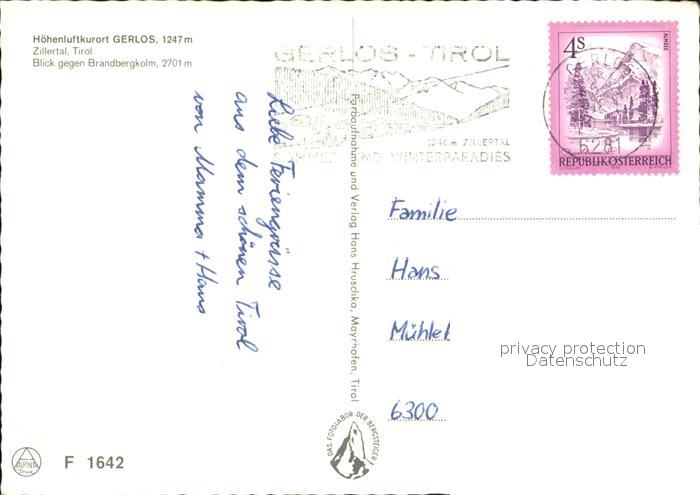 Höhenluftkurort GERLOS, 1247 m
Zillertal, Tirol
Blick gegen Brandbergkolm, 2701 m
GERLOS - TIROL
1246 m ZILLERTAL
UND WINTERPARADIES
4S
ALMSEE
REPUBLIK ÖSTERREICH
GERLOS
6281
Liebe Feriengrüsse
aus dem schönen Tirol
von Mamma + Hans
Farbaufnahme und Verlag Hans Hruschka, Mayrhofen, Tirol
Familie
Hans
Mühle
6300
privacy protection
Datenschutz
DAS FOTOLABOR DER BERGSTEIGER
ALPINA
F 1642